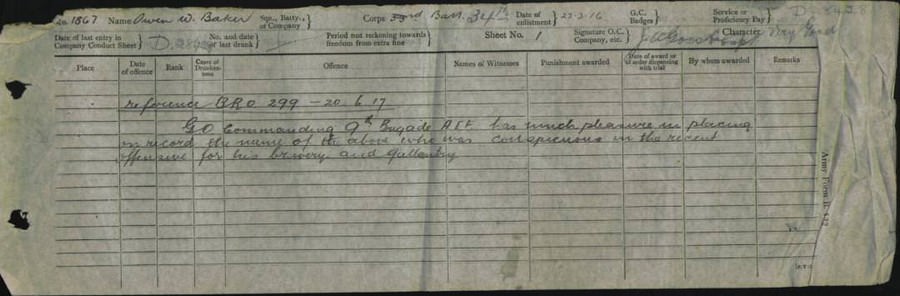 No. 1867 Name Owen W. Baker Sqn., Batty., or Company } Corps 33rd Batt. 34th Date of enlistment } 23-2-16 G.C. Badges } Service or Proficiency Pay }
Date of last entry in Company Conduct Sheet } No. and date of last drunk } Period not reckoning towards freedom from extra fine Sheet No. 1 Signature O.C., Company, etc. } Character Very Good
Place Date of offence Rank Cases of Drunkenness Offence Names of Witnesses Punishment awarded Date of award or of order dispensing with trial By whom awarded Remarks
reference BRO 299 - 20.6.17
GO Commanding 9th Brigade AIF. has much pleasure in placing
on record the name of the above who was conspicuous in the recent
offensive for his bravery and gallantry
Army Form B. 122